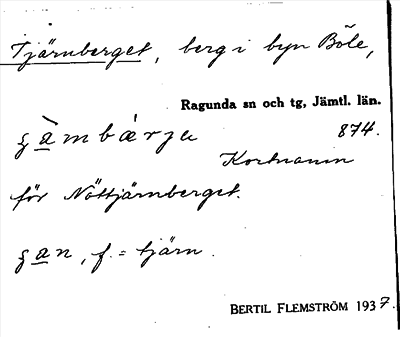 Tjärnberget, berg i byn Böle,
Ragunda sn och tg, Jämtl. län.
874.
Kortnamn
för Nöttjärnberget.
f. = tjärn.
BERTIL FLEMSTRÖM 1937.